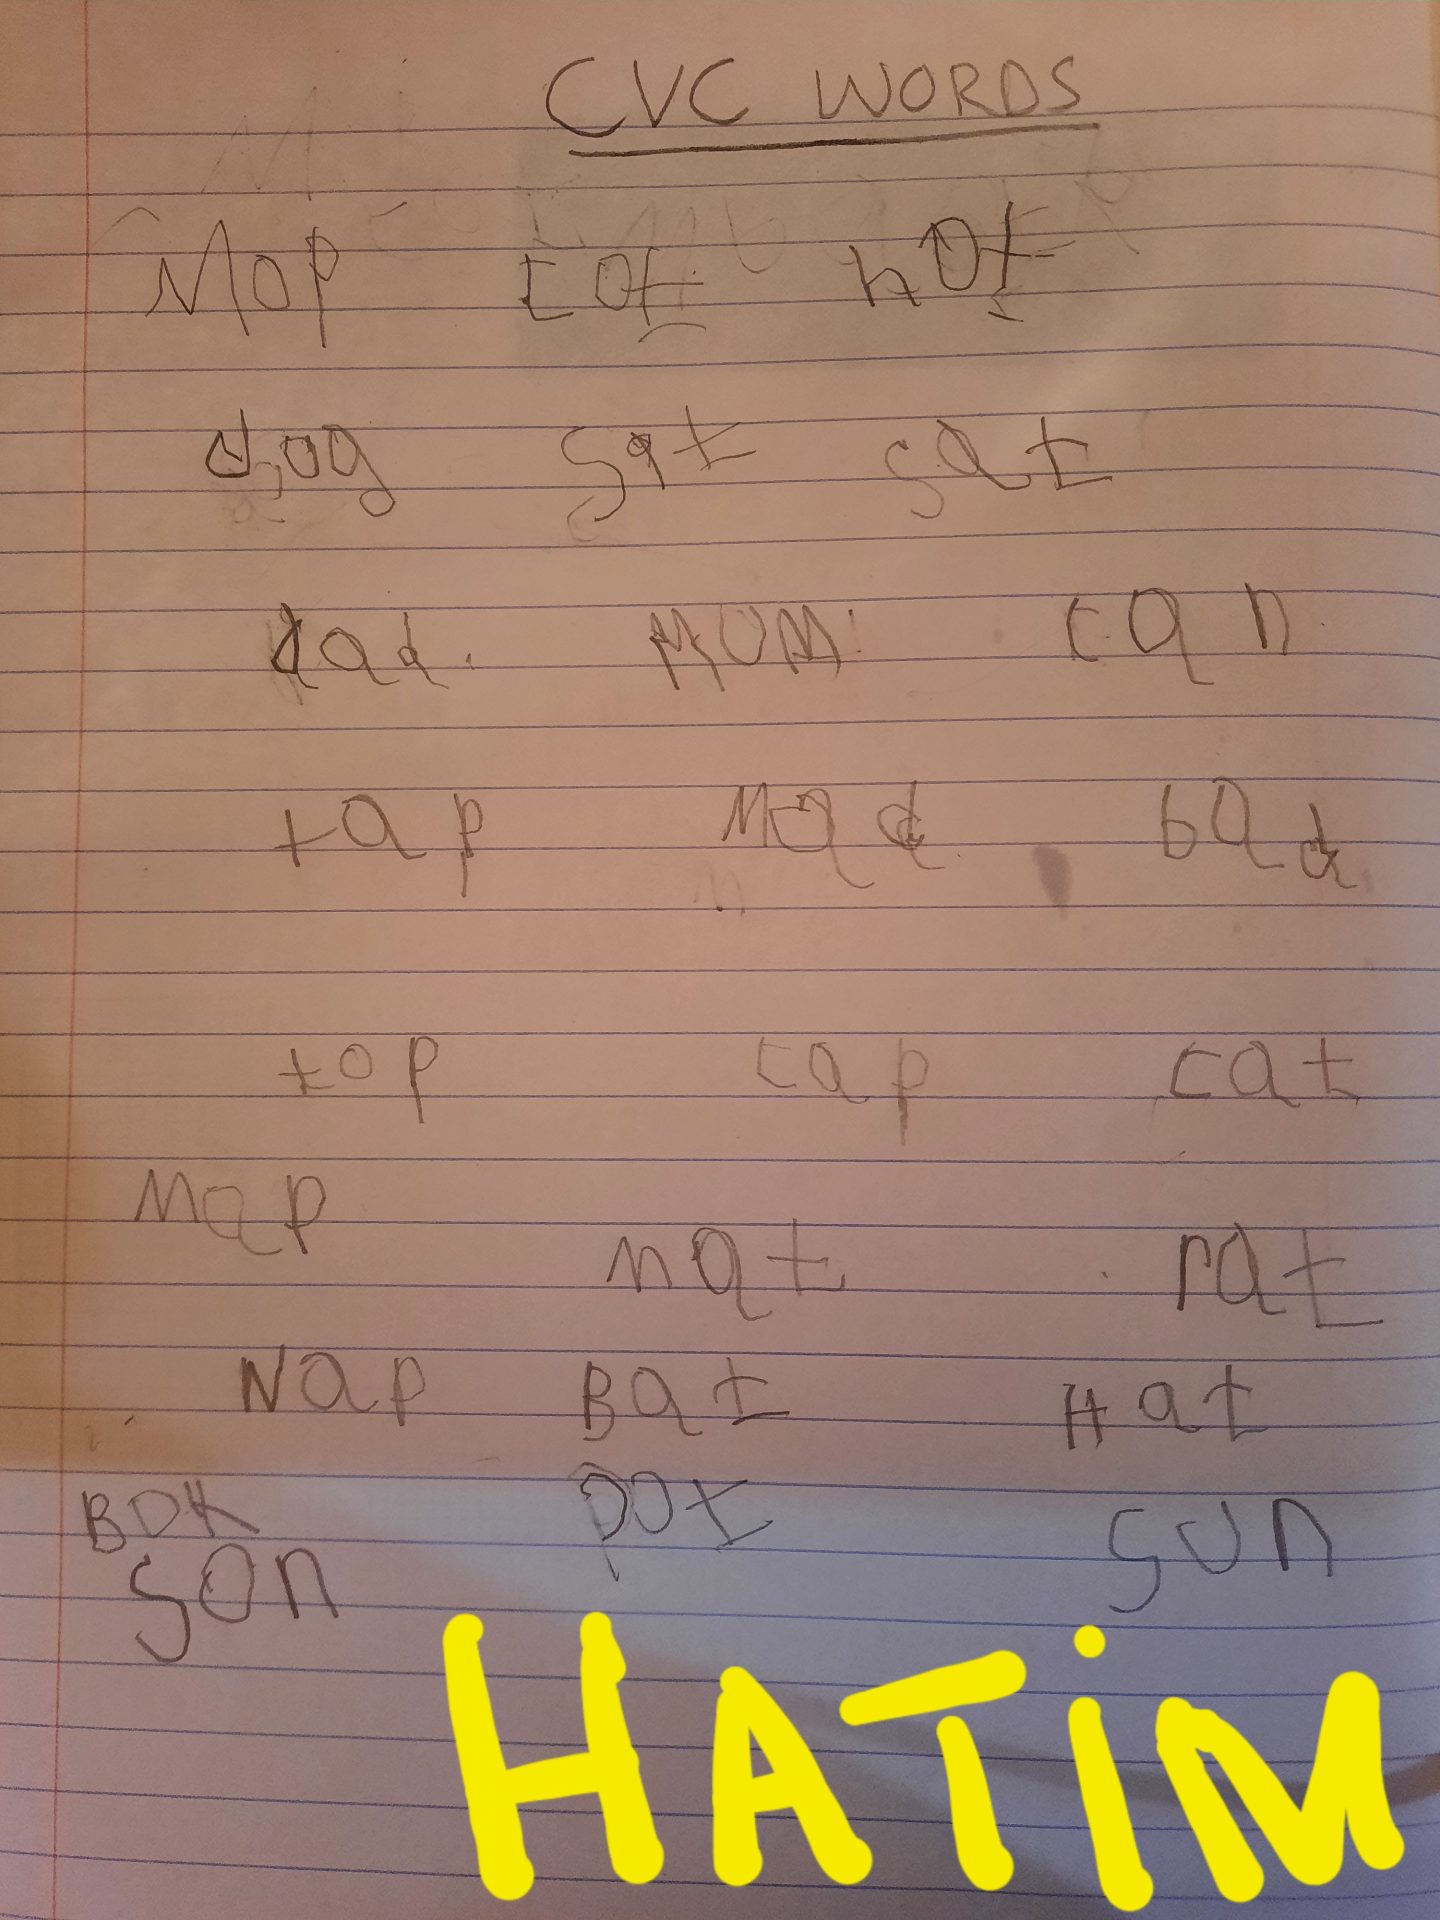 CVC WORDS
Mop cot hOt
dog sat sat
dad MUM can
tap Mad bad
top cap cat
Map nat rat
Nap Bat Hat
BOK pot sun
son
HATiM